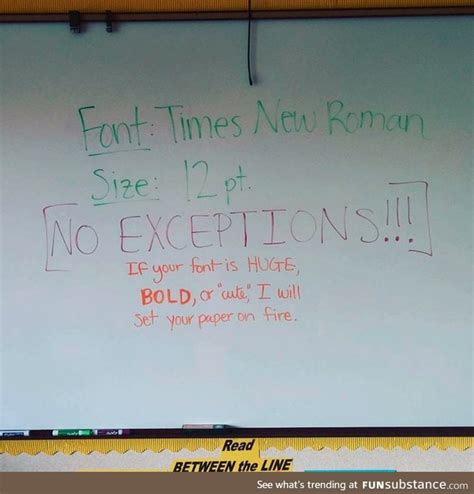 Font: Times New Roman
Size: 12 pt.
NO EXCEPTIONS!!!
If your font is HUGE,
BOLD, or "cute," I will
set your paper on fire.
Read
BETWEEN the LINE
See what's trending at FUNsubstance.com